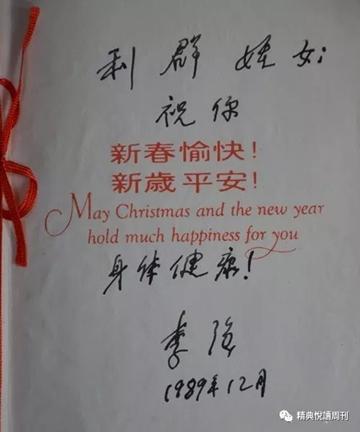 利群侄女:
祝你
新春愉快!
新歲平安!
May Christmas and the new year
hold much happiness for you
身体健康!
李强
1989年12月
精典悦讀周刊